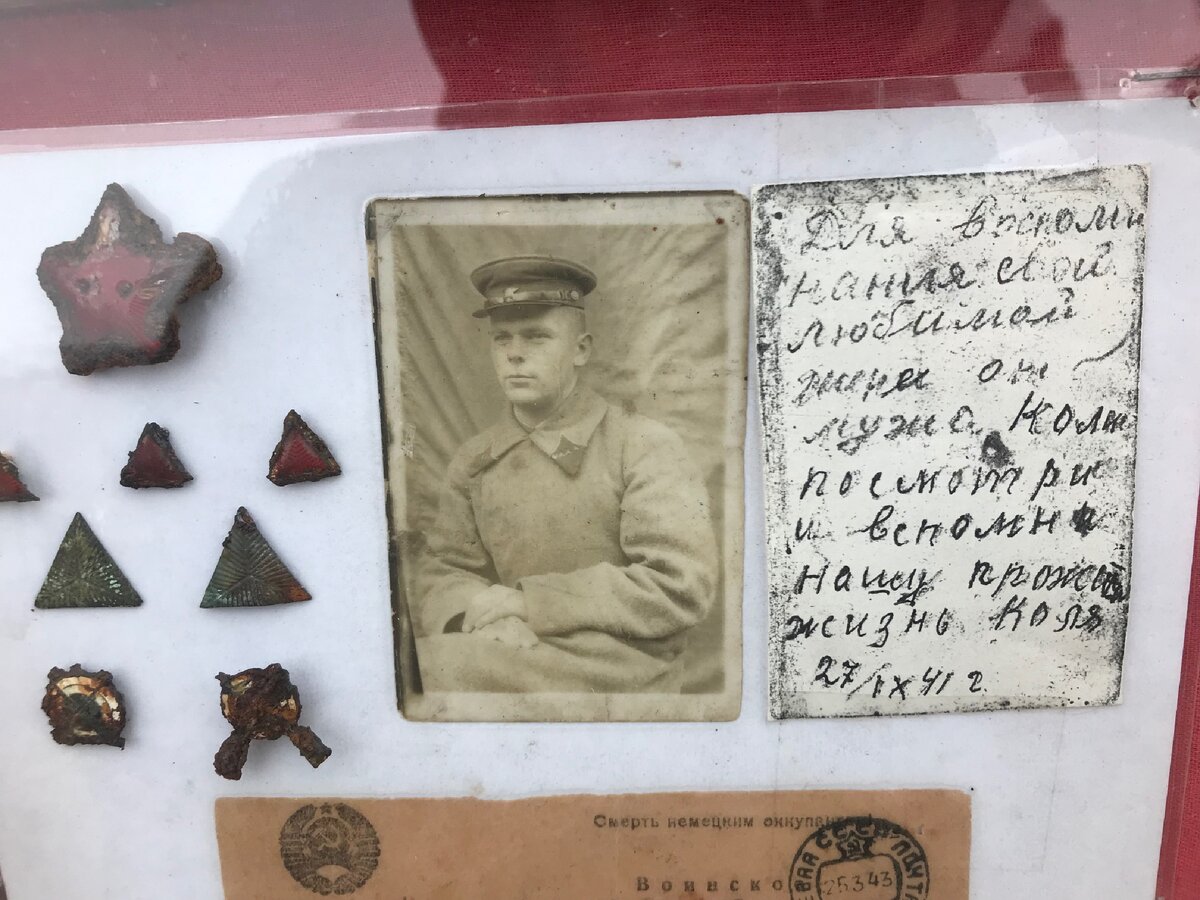 Для вспоми
нания свой
любимой
жири от
мужа Коли
посмотри
и вспомни
нашу прожи
жизнь Коля
27/IX 41 г
Смерть немецким
Воинско
СССР ПОЧТА
25.3.43